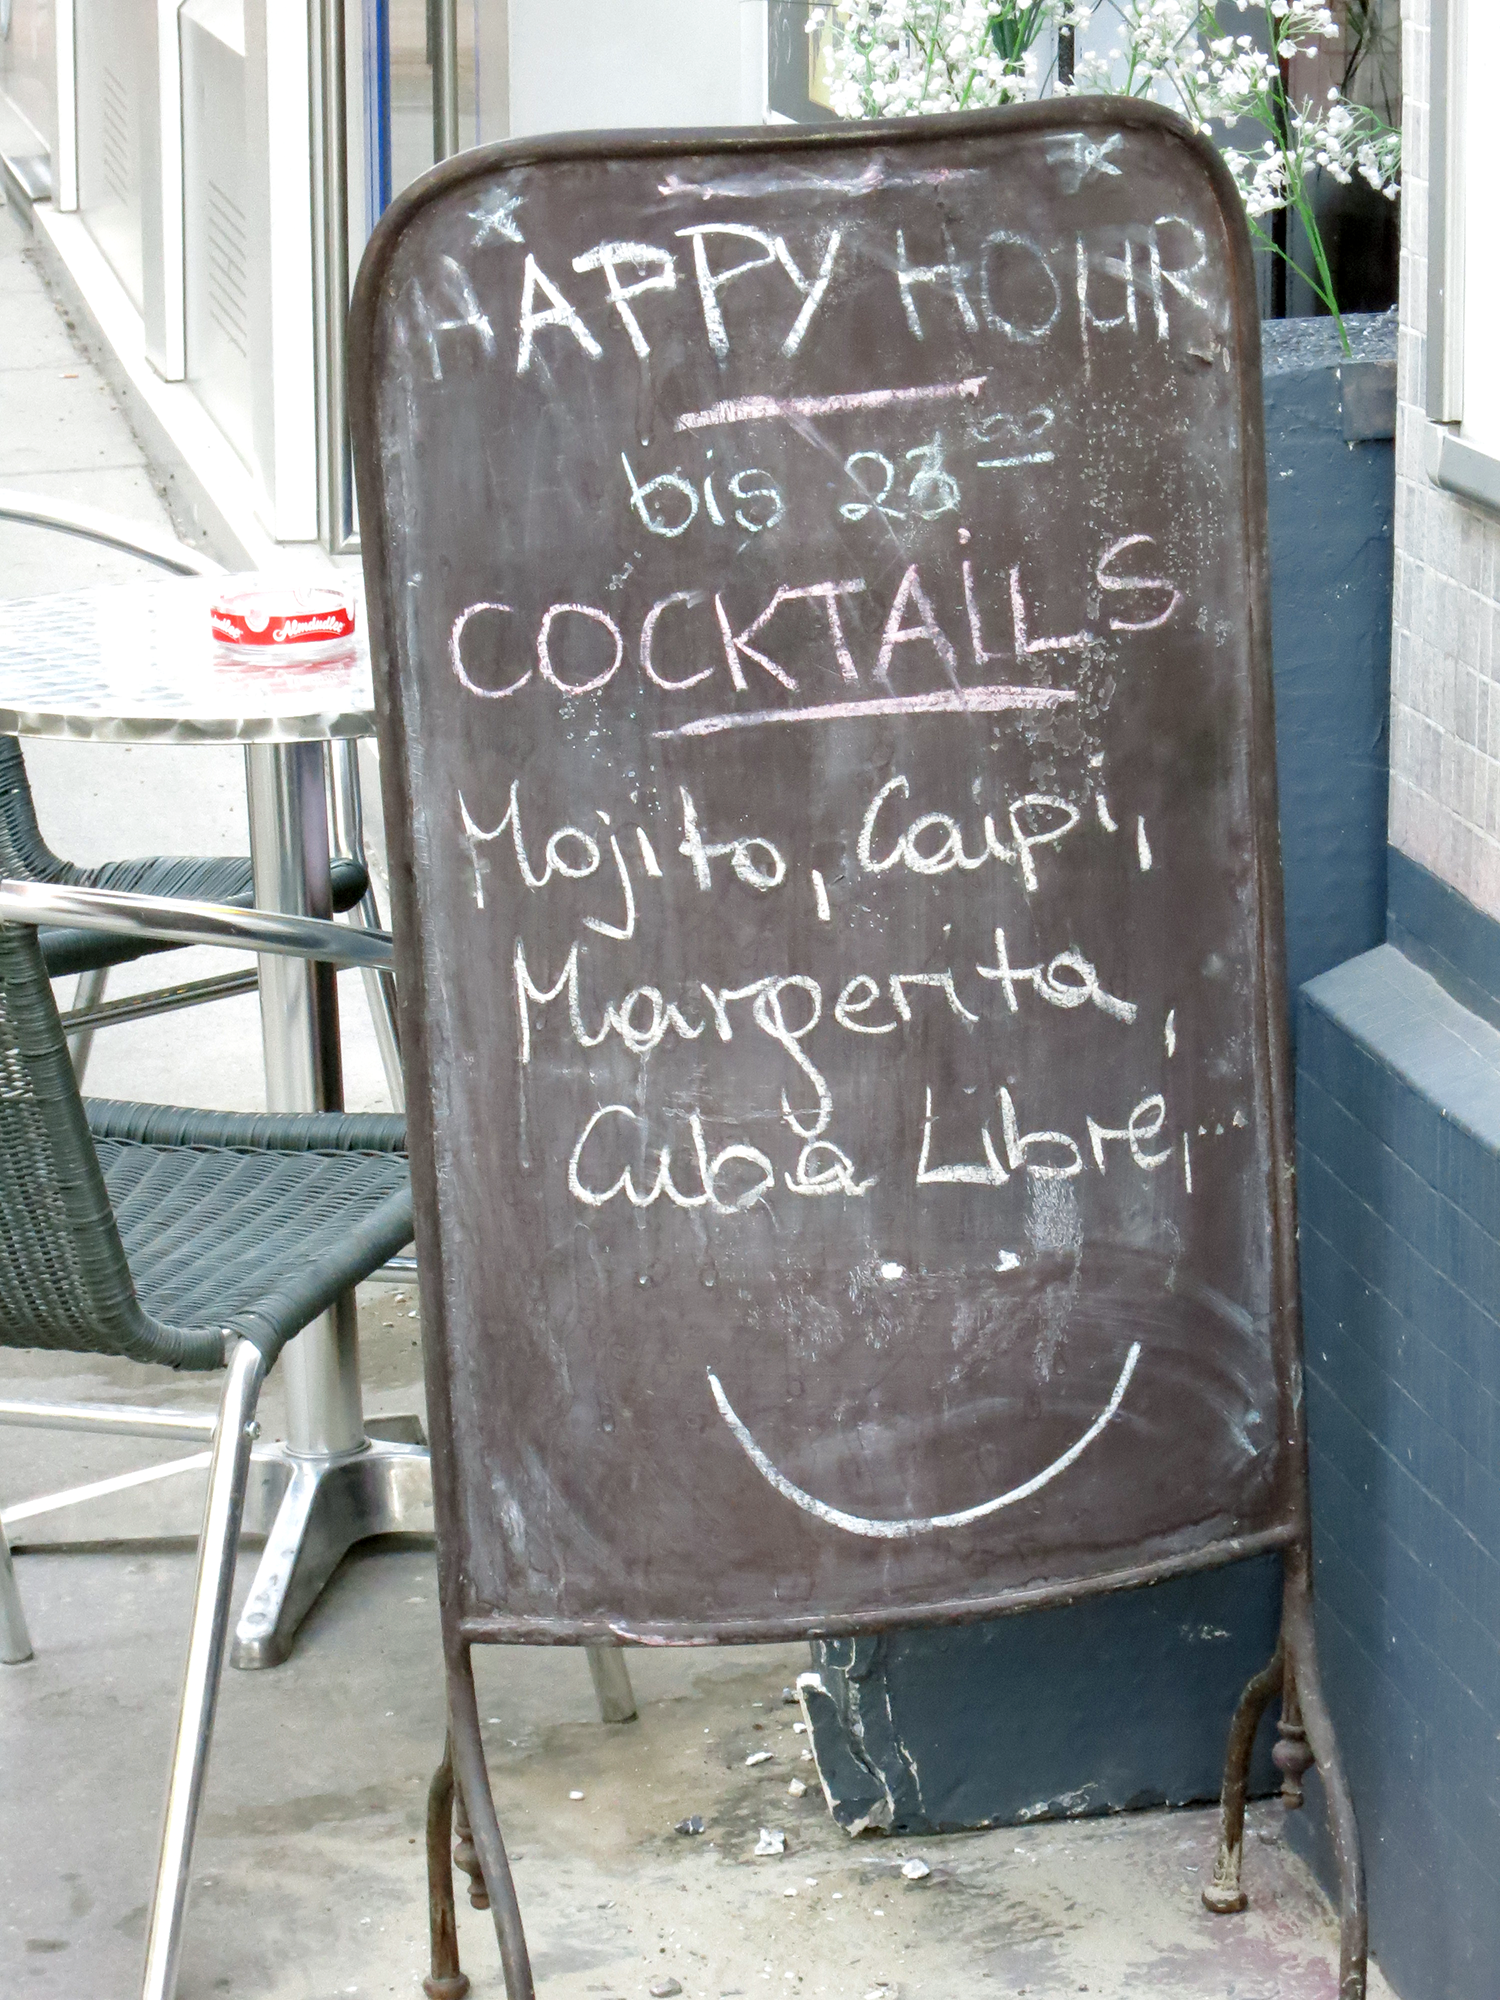 HAPPY HOUR
bis 23⁰⁰
COCKTAiLS
Mojito, Caipi,
Margerita,
Cuba Libre,...
Almdudler